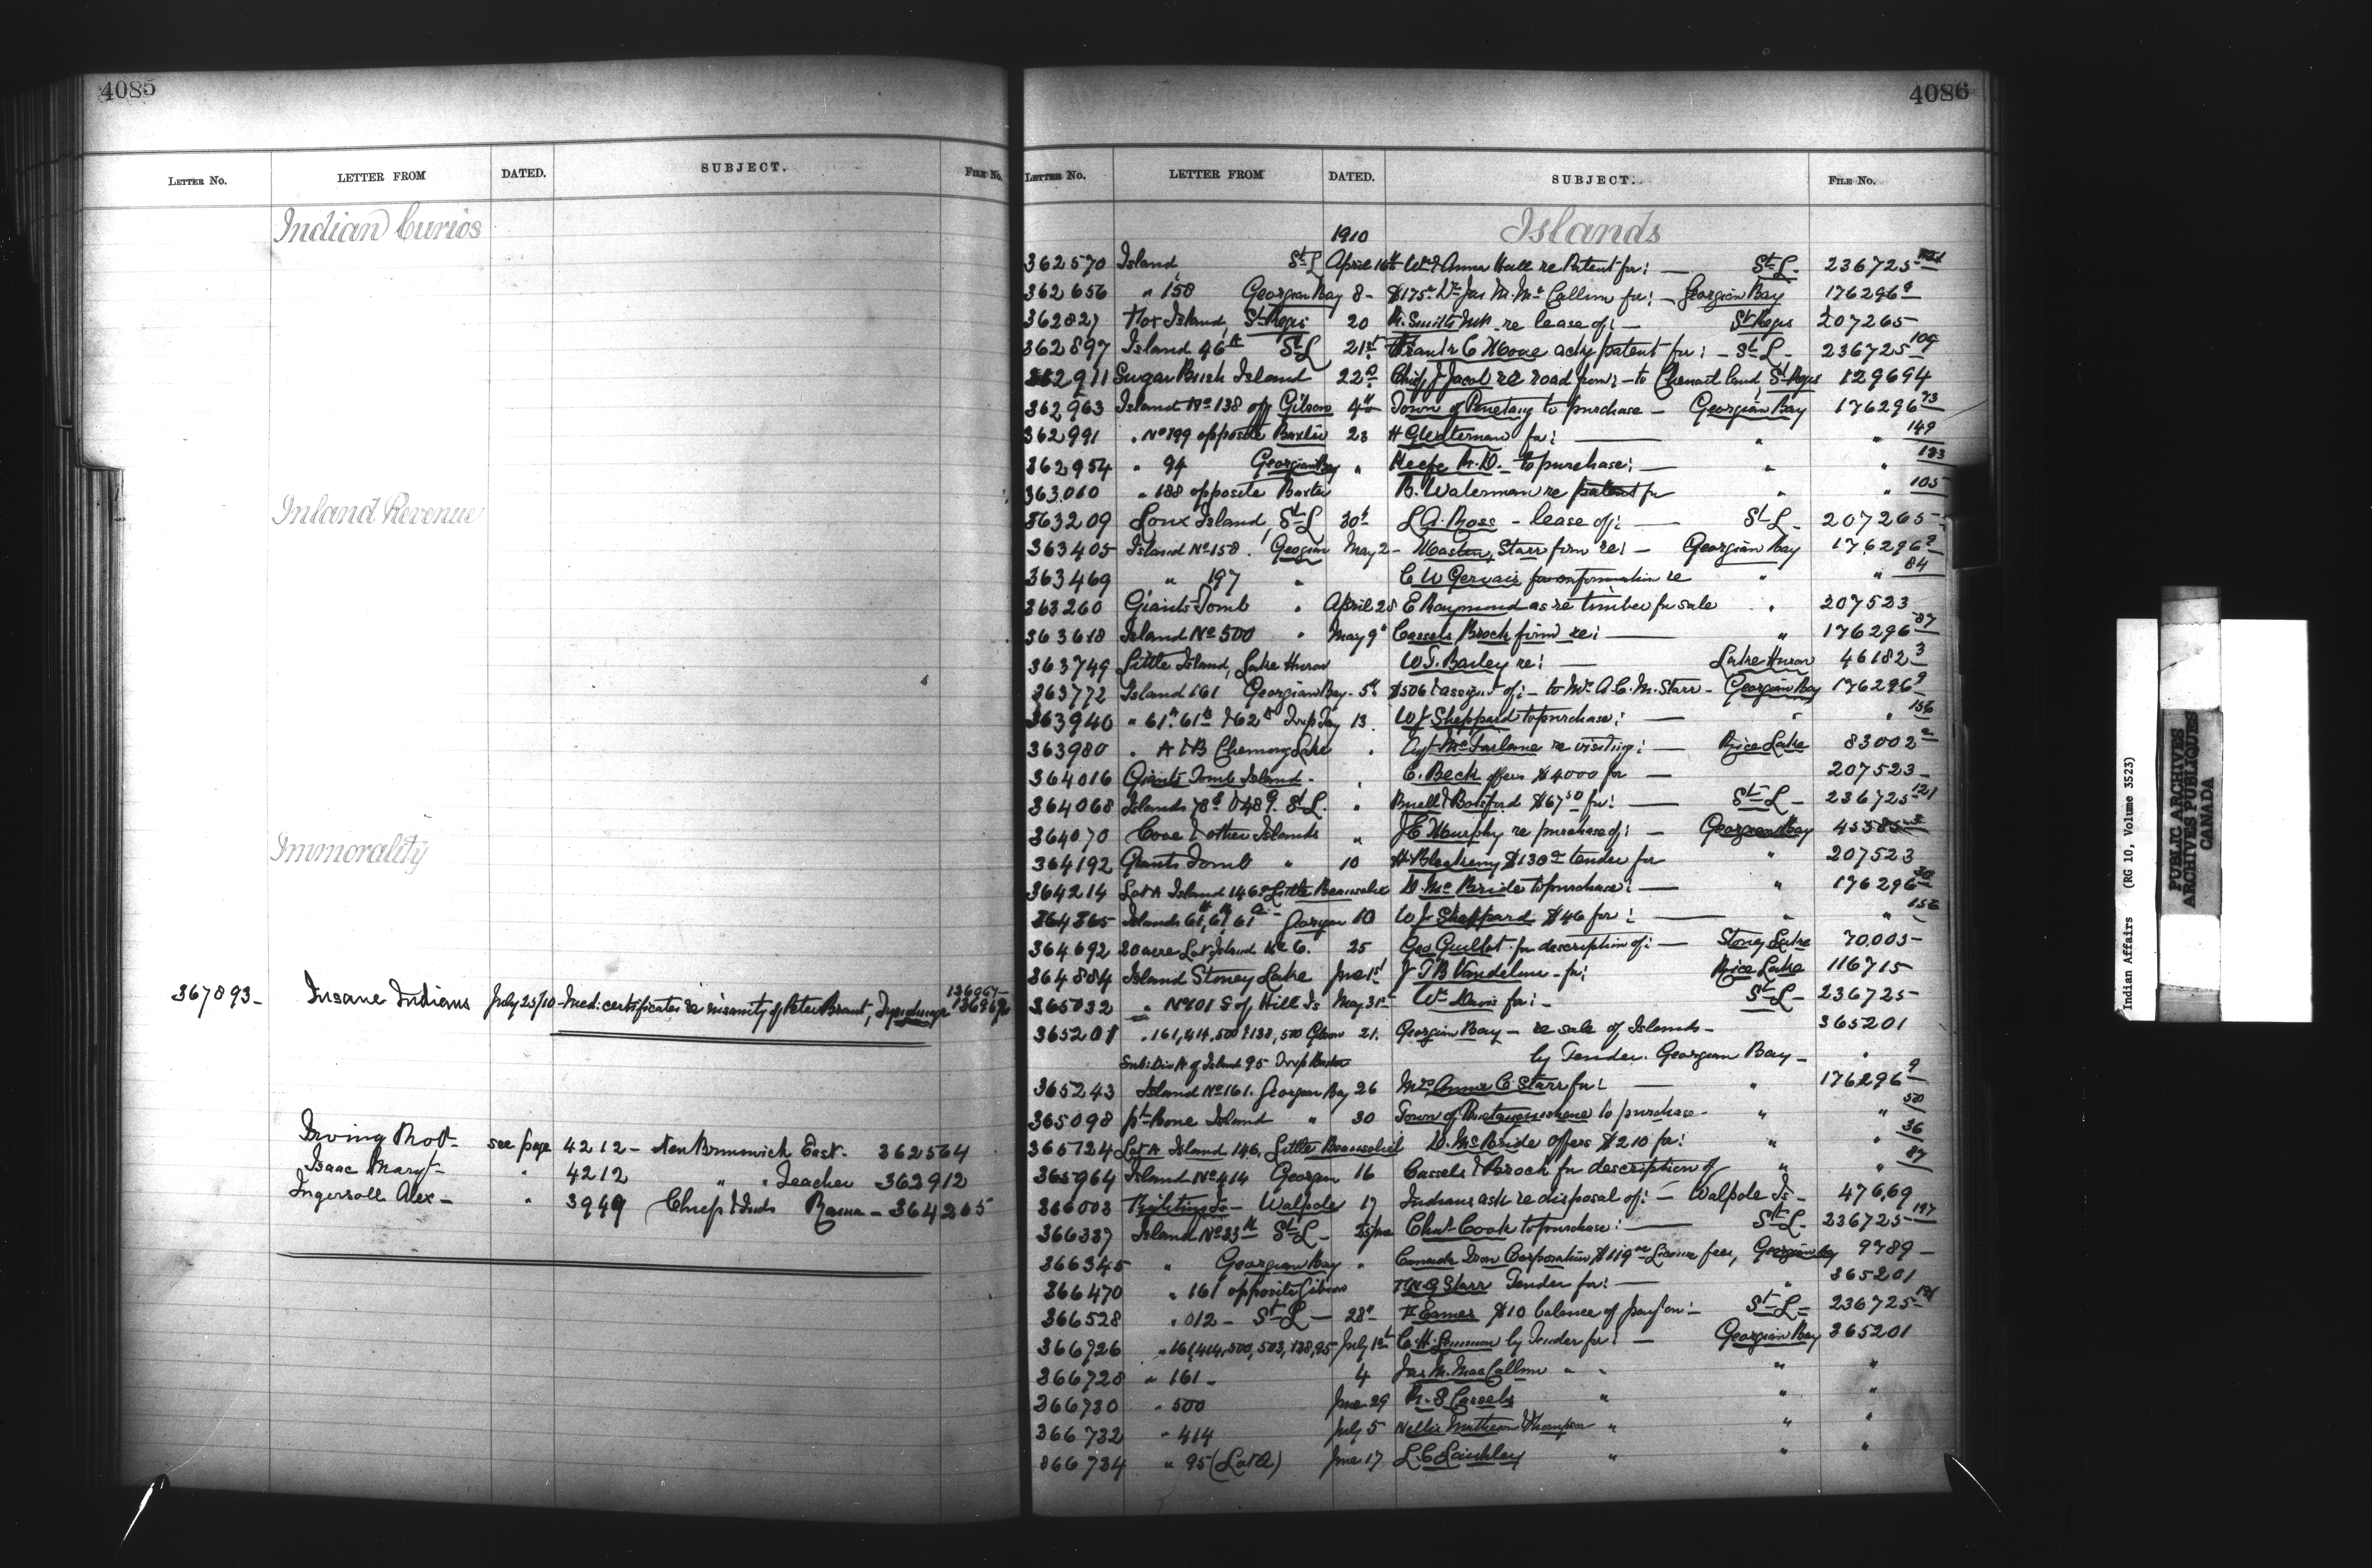 4085
LETTER No. LETTER FROM DATED. SUBJECT. FILE No.
Indian Curios
Inland Revenue
Immorality
367893 - Insane Indians July 25/10 - Med: certificates re insanity of Peter Brant, Tyendinaga 136967
Irving Robt - see page 4212 - New Brunswick East. 362564
Isaac Maryt - " 4212 " " Teacher 362912
Ingersoll Alex - " 3949 Chief & Inds Rama - 364265
4086
LETTER No. LETTER FROM DATED. SUBJECT. FILE No.
1910 Islands
362570 Island St L April 16th Wm & Anna Hall re Patent for: — St L - 236725
362656 " 158 Georgian Bay 8 - $175 Dr Jas M. McCallum for: - Georgian Bay 176296 9
362827 Island, St Regis 20 R. Smith MP. re lease of: — St Regis 207265
362897 Island 46 A St L 21st Frank C Moore acky patent for: - St L - 236725 109
362911 Sugar Bush Island 22d Chief J Jacob re road from: - to land, St Regis 129694
362963 Island No 138 off Gibson 4th Town of Penetang to purchase - Georgian Bay 176296 73
362991 " No 199 opposite Baxter 23 H G Waterman for: — " " 149
362954 " 94 Georgian Bay " Keefe R. D. - to purchase: — " " 133
363010 " 188 opposite Baxter B. Waterman re patent for " " 105
363209 Island, St L 30th L A. Ross - lease of: — St L - 207265
363405 Island No 158. Georgian May 2 - Masten, Starr firm re: - Georgian Bay 176296 9
363469 " 197 " C W Gervais for information re " " 84
363260 Giants Tomb " April 28 E Raymond as re timber for sale " 207523
363618 Island No 500 " May 9th Cassels Brock firm re: — " 176296 87
363749 Little Island, Lake Huron W. J. Bailey re: — Lake Huron 46182 3
363772 Island 161 Georgian Bay - 5th $506 & assignt of: - to Mrs A. C. M. Starr - Georgian Bay 176296 9
363940 " 61A. 61B & 62 Twp Tay 13. W J Sheppard to purchase: — " " 156
363980 " A & B Chemong Lake " Agt McFarlane re visiting: — Rice Lake 83002
364016 Giants Tomb Island - " C. Beck offers $4000 for — 207523 -
364068 Islands & 48 9. St L. " Buell & Botsford $67 50 for: — St L - 236725 121
364070 Cove & other Islands " J C Murphy re purchase of: — Georgian Bay 45385
364192 Giants Tomb " 10 $130 tender for " 207523
364214 Lot A Island 146 Little Beausoleil D. McBride to purchase: — " 176296 36
364365 Islands 61, 61, 61 Georgian 10 W J Sheppard $46 for: — " " 156
364692 20 acre Lot, Island No 6. 25 Geo Guillot for description of: — Stoney Lake 70,005 -
364884 Island Stoney Lake June 1st J T B Vandelm - for: Rice Lake 116715
365032 " No 101 S of Hill Is May 31st Wm Davis for: - St L - 236725 -
365201 " 161, 414, 500 & 138, 503 Gibson 21. Georgian Bay - re sale of Islands - 365201
Sub: Div A of Island 95 Twp Baxter by Tender. Georgian Bay - "
365243 Island No 161. Georgian Bay 26 Mrs Anna C Starr for: — " 176296 9
365098 pt Bone Island " 30 Town of Penetanguishene to purchase - " "
365724 Lot A Island 146, Little Beausoleil D. McBride offers $210 for: " " 36
365964 Island No 414 Georgian 16 Cassels & Brock for description of " " 87
366003 Fighting Is - Walpole 17 Indians ask re disposal of: - Walpole Is - 47669
366337 Island No 33 A St L - Chas Cook to purchase: — St L - 236725 197
366345 " Georgian Bay " Canada Iron Corporation $119 License fees, Georgian Bay 9789 -
366470 " 161 opposite Gibson Starr Tender for: — " 365201
366528 " 012 - St L — 28th F. Eames $10 balance of on: - St L = 236725
366726 " 161, 414, 500, 503, 138, 95 July 1st C. H. by Tender for: — Georgian Bay 365201
366728 " 161 - 4 Jas M. MacCallum " " " "
366730 " 500 June 29 R. S Cassels " " "
366732 " 414 July 5 Nellie Matheson Thompson " " "
366734 " 95 (Lot A) June 17 L. C. " " "
Indian Affairs (RG 10, Volume 3523)
PUBLIC ARCHIVES
ARCHIVES PUBLIQUES
CANADA